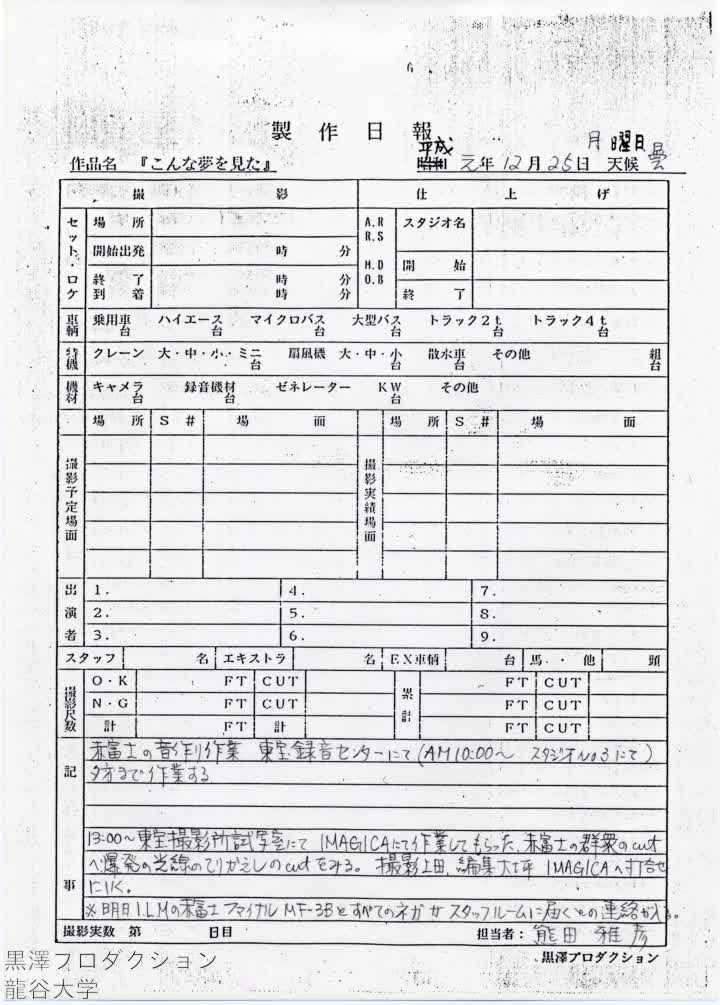 製作日報
月曜日
作品名 『こんな夢を見た』 昭和 平成 元年 12月 25日 天候 曇
撮影 仕上げ
セット・ロケ 場所 A.R R.S M.D O.B スタジオ名
開始出発 時 分 開始
終了到着 時 分 時 分 終了
車輌 乗用車 台 ハイエース 台 マイクロバス 台 大型バス 台 トラック2t 台 トラック4t 台
特機 クレーン 大・中・小・ミニ 台 扇風機 大・中・小 台 散水車 台 その他 組 台
機材 キャメラ 台 録音機材 台 ゼネレーター KW 台 その他
場所 S# 場面 場所 S# 場面
撮影予定場面 撮影実績場面
出演者 1. 4. 7.
2. 5. 8.
3. 6. 9.
スタッフ 名 エキストラ 名 EX車輌 台 馬・他 頭
撮影尺数 O・K FT CUT 累計 FT CUT
N・G FT CUT FT CUT
計 FT 計 FT CUT
記事
赤富士の音作り作業 東宝録音センターにて(AM10:00〜 スタジオNo3にて)
夕方まで作業する
13:00〜東宝撮影所試写室にて IMAGICAにて作業してもらった、赤富士の群衆のcut
や爆発の光線のてりかえしのcutをみる。 撮影上田、編集大坪 IMAGICAへ打合せ
に行く。
※明日I.L.Mの赤富士ファイナル MF-3Bとすべてのネガ がスタッフルームに届くとの連絡が入る。
撮影実数 第 日目 担当者: 熊田雅彦
黒澤プロダクション
黒澤プロダクション
龍谷大学